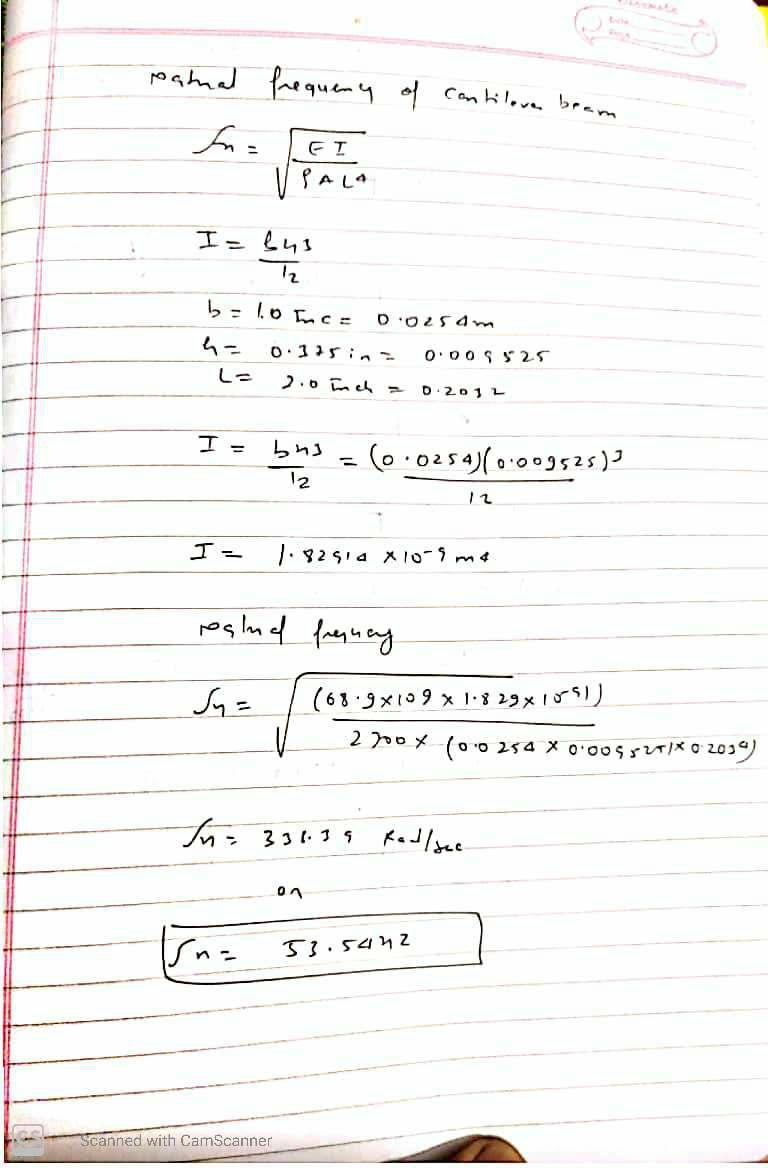 natural frequency of cantilever beam
fn = √ EI / ρAL4
I = bh3 / 12
b = 1.0 Inc = 0.0254m
h = 0.375 in = 0.009525
L = inch = 0.2032
I = bh3 / 12 = (0.0254)(0.009525)3 / 12
I = 1.82914 × 10-9 m4
natural frequency
fn = √ (68.9×109 × 1.829×10-9)) / 2700 × (0.0254 × 0.009525)×
fn = Rad/sec
or
fn = 53.54Hz
Scanned with CamScanner